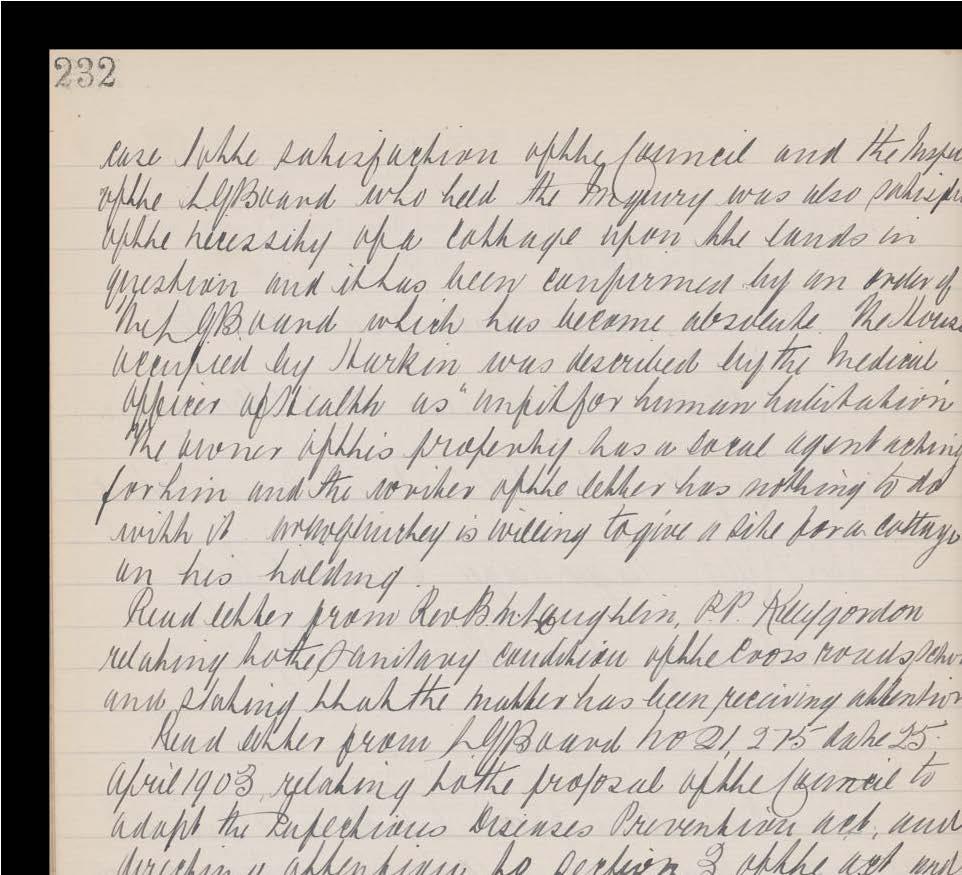 232
case to the satisfaction of the Council and the Inspe
of the L.G.Board who held the Inquiry was also satisfi
of the necessity of a cottage upon the lands in
question and it has been confirmed by an order of
the L.G.Board which has become absolute. The House
occupied by Harkin was described by the Medical
Officer of Health as "unfit for human habitation"
The owner of this property has a local agent acting
for him and the writer of the letter has nothing to do
with it is willing to give a site for a cottage
on his holding.
Read letter from Rev. B McLaughlin, P.P. Killygordon
relating to the Sanitary condition of the Cross roads, scho
and stating that the matter has been receiving attention
Read letter from L.G.Board No 21,275 date 25.
April 1903, relating to the proposal of the Council to
adopt the Infectious Diseases Prevention act, and
directing attention to section 3 of the act and